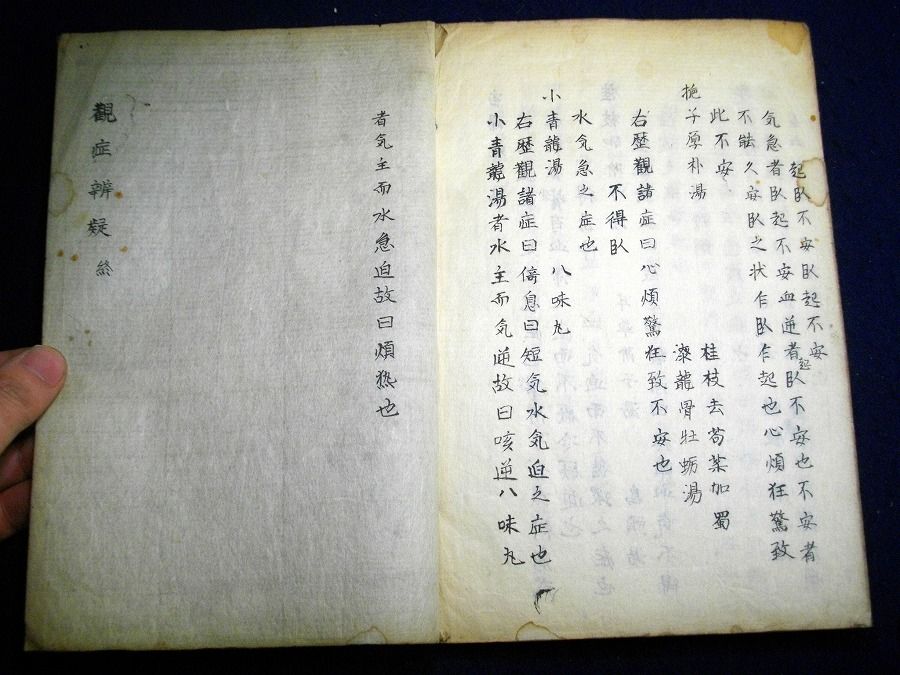 起臥不安臥起不安
気急者臥起不安血逆者起臥不安也不安者
不能久安臥之状乍臥乍起也心煩狂驚致
此不安
梔子厚朴湯
桂枝去芍薬加蜀
漆龍骨牡蛎湯
右歴觀諸症曰心煩驚狂致不安也
不得臥
水気急之症也
小青龍湯 八味丸
右歴觀諸症曰倚息曰短気水気迫之症也
小青龍湯者水主而気逆故曰咳逆八味丸
者気主而水急迫故曰煩熱也
觀症辨疑 終